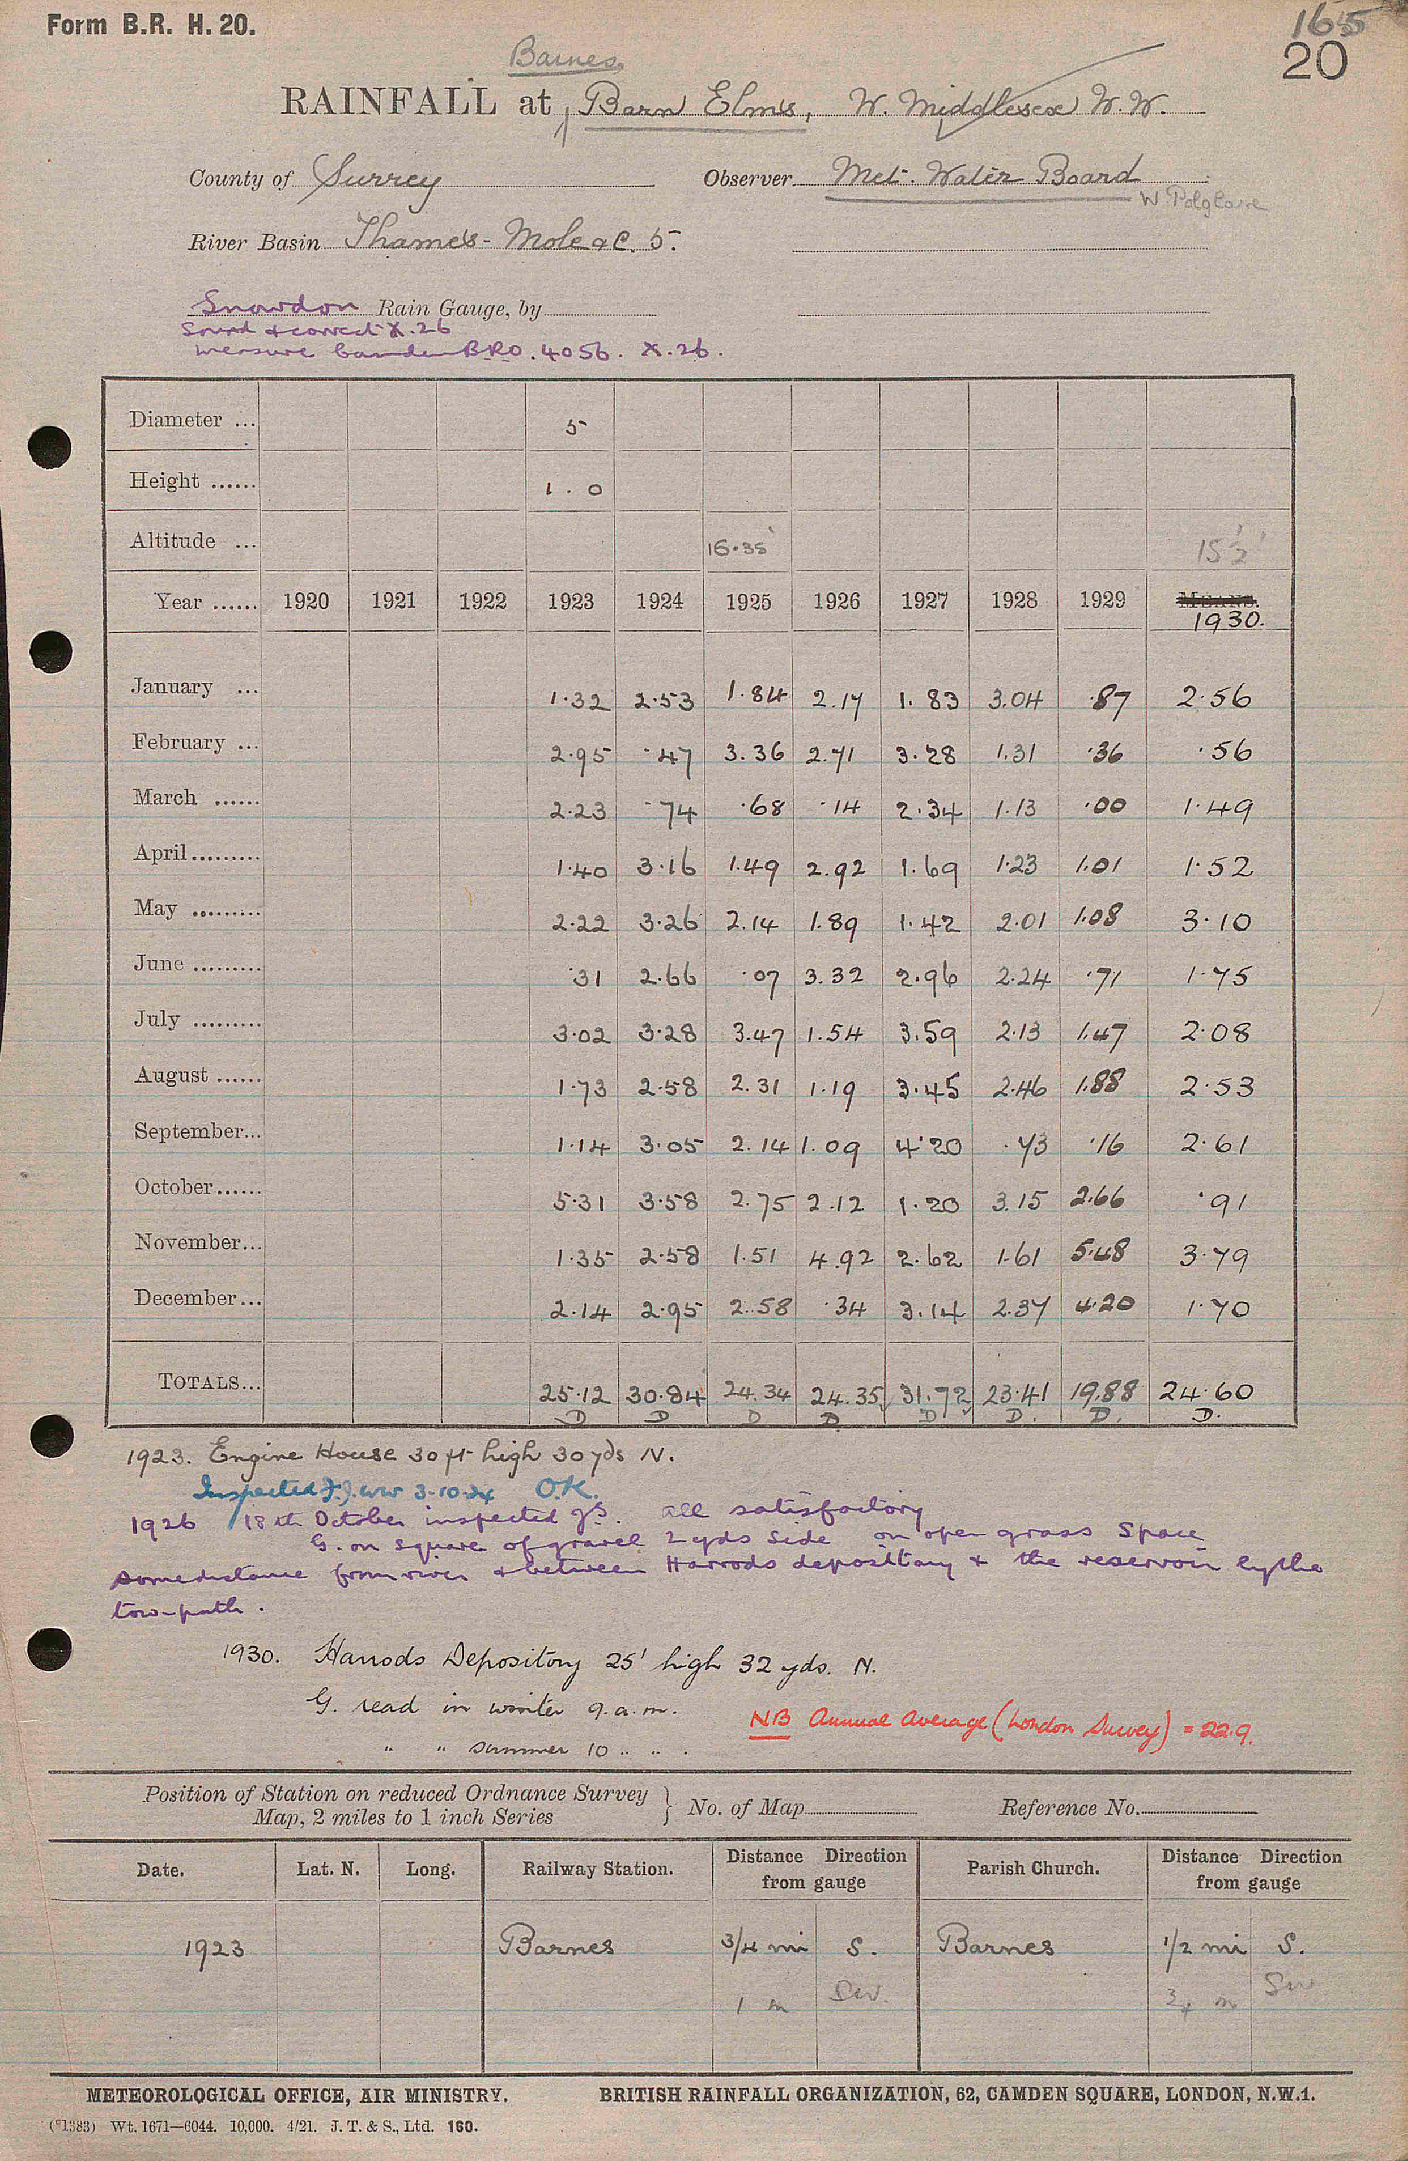 Form B.R. H. 20.
165
20
Barnes
RAINFALL at Barn Elms, W. Middlesex W. W.
County of Surrey Observer Met. Water Board
W Polglase
River Basin Thames - Mole &c. 5.
Snowdon Rain Gauge, by
Sound & correct X.26
measure Camden BRO. 4056. X.26.
Diameter ... 5
Height ...... 1.0
Altitude ... 16.35' 15½'
Year ...... 1920 1921 1922 1923 1924 1925 1926 1927 1928 1929 MEANS. 1930.
January ... 1.32 2.53 1.84 2.17 1.83 3.04 .87 2.56
February ... 2.95 .47 3.36 2.71 3.28 1.31 .36 .56
March ...... 2.23 .74 .68 .14 2.34 1.13 .00 1.49
April......... 1.40 3.16 1.49 2.92 1.69 1.23 1.01 1.52
May ......... 2.22 3.26 2.14 1.89 1.42 2.01 1.08 3.10
June ......... .31 2.66 .07 3.32 2.96 2.24 .71 1.75
July ......... 3.02 3.28 3.47 1.54 3.59 2.13 1.47 2.08
August ...... 1.73 2.58 2.31 1.19 3.45 2.46 1.88 2.53
September... 1.14 3.05 2.14 1.09 4.20 .73 .16 2.61
October...... 5.31 3.58 2.75 2.12 1.20 3.15 2.66 .91
November... 1.35 2.58 1.51 4.92 2.62 1.61 5.48 3.79
December... 2.14 2.95 2.58 .34 3.14 2.37 4.20 1.70
TOTALS... 25.12 30.84 24.34 24.35 31.72 23.41 19.88 24.60
D D D D D D. D. D.
1923. Engine House 30 ft high 30 yds N.
Inspected 3.10.24 O.K.
1926 18th October inspected JS. all satisfactory
G. on square of gravel 2 yds side on open grass space
some distance from river & between Harrods depository & the reservoir by the
tow-path.
1930. Harrods Depository 25' high 32 yds. N.
G. read in winter 9. a.m.
" " summer 10 " " .
NB Annual Average (London Survey) = 22.9.
Position of Station on reduced Ordnance Survey
Map, 2 miles to 1 inch Series } No. of Map Reference No.
Date. Lat. N. Long. Railway Station. Distance Direction from gauge Parish Church. Distance Direction from gauge
1923 Barnes 3/4 mi S. Barnes 1/2 mi S.
1 m SW. 3/4 m SW
METEOROLOGICAL OFFICE, AIR MINISTRY. BRITISH RAINFALL ORGANIZATION, 62, CAMDEN SQUARE, LONDON, N.W.1.
(*1383) Wt. 1671—6044. 10,000. 4/21. J. T. & S., Ltd. 160.